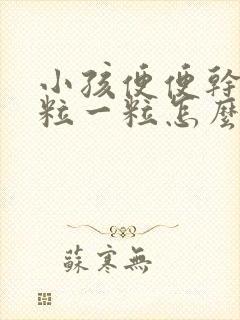 小孩便便幹
粒一粒怎麼
蘇寒無